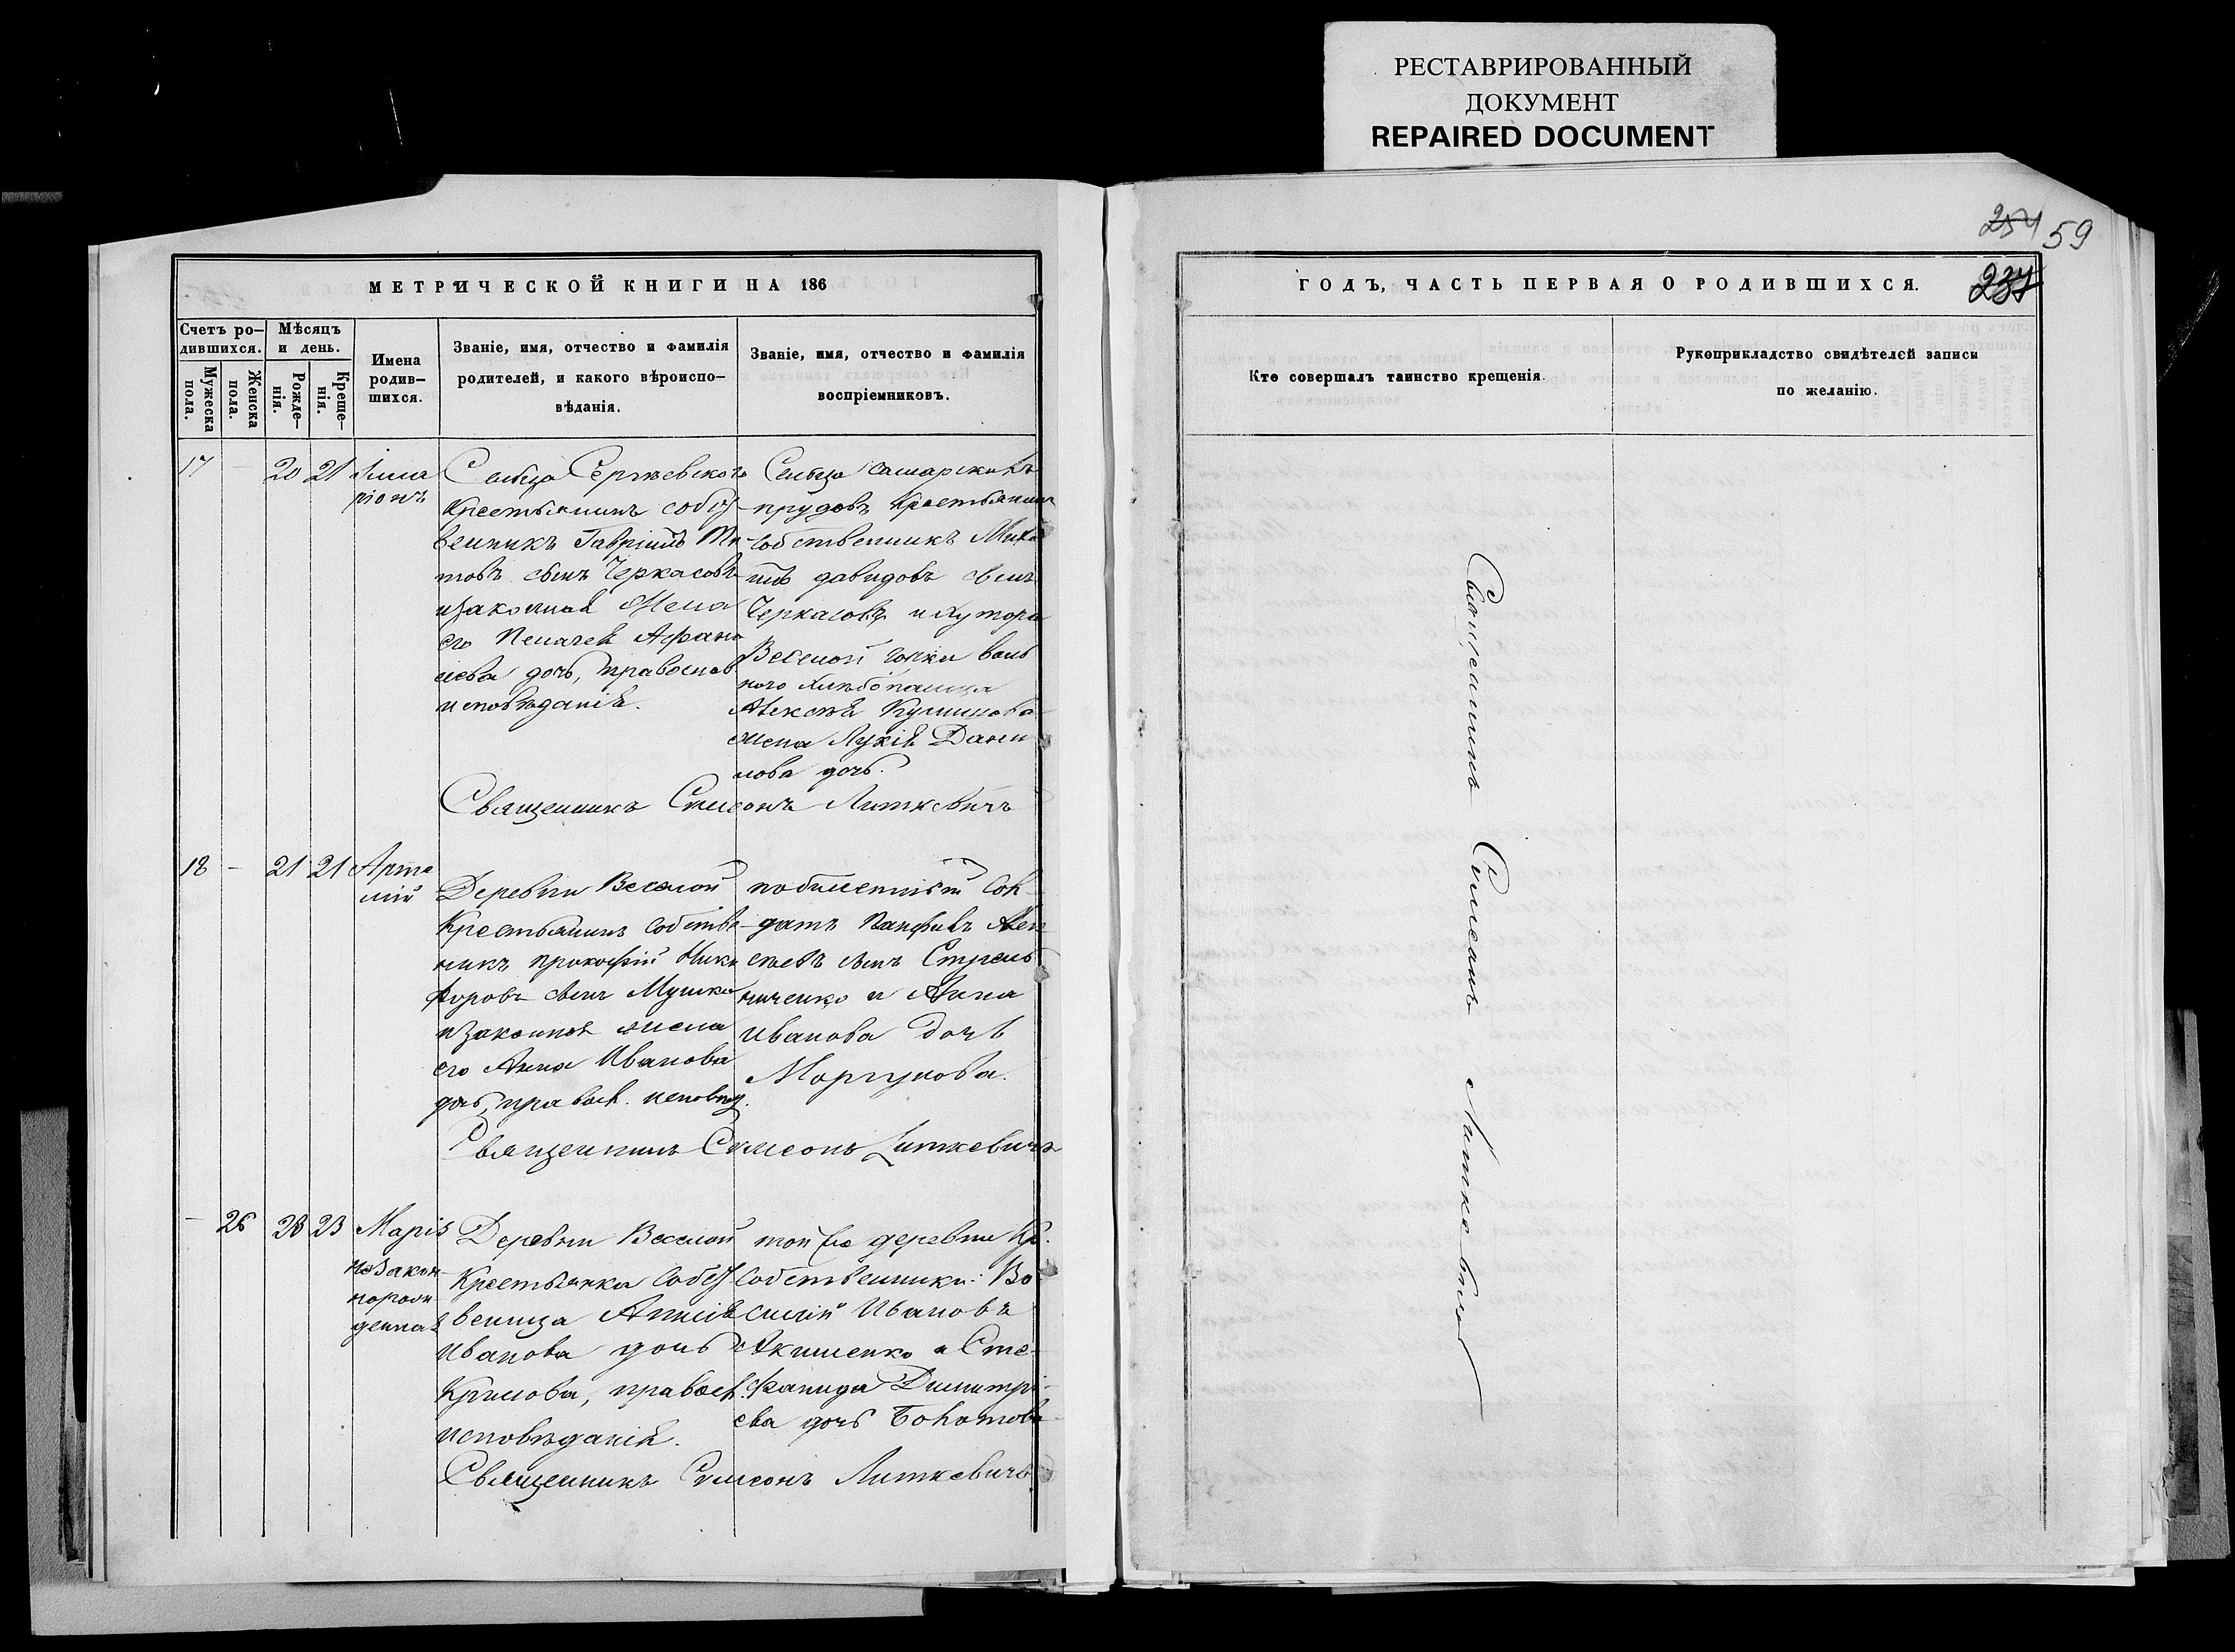 РЕСТАВРИРОВАННЫЙ
ДОКУМЕНТ
REPAIRED DOCUMENT
254 59
МЕТРИЧЕСКОЙ КНИГИ НА 186
Счетъ ро-
дившихся.
Мужеска
пола.
Женска
пола.
Мѣсяцъ
и день.
Рожде-
нія.
Креще-
нія.
Имена
родив-
шихся.
Званіе, имя, отчество и фамилія
родителей, и какого вѣроиспо-
вѣданія.
Званіе, имя, отчество и фамилія
воспріемниковъ.
17 - 20 21
Илла
ріонъ
Сельца Сергѣевскаго
Крестьянинъ собст-
венникъ Гавріилъ Ти
товъ сынъ Черкасовъ
и законная жена
его Пелагея Афана
сіева дочь, православ
исповѣданія.
Сельца Самарскихъ
прудовъ Крестьянинъ
собственникъ Миха
илъ давидовъ сынъ
Черкасовъ и хутора
Веселой горки воль
наго хлѣбопашца
Алексѣя
жена Лукія Дани
лова дочь.
Священникъ Симеонъ Литкевичъ
18 - 21 21
Арте
мій
Деревни Веселой
Крестьянинъ собстве
никъ прокофій Ники
форовъ сынъ Мушка
и законная жена
его Анна Иванова
дочь, правосл. исповѣд.
побилетній Сол-
датъ Панфилъ Алек
сѣевъ сынъ Стрель
ниченко и Анна
Иванова дочь
Моргунова.
Священникъ Симеонъ Литкевичъ
- 26 23 23
Марія
незакон
норож
денная
Деревни Веселой
Крестьянка собст
венница
Иванова дочь
Крилова, правосл.
исповѣданія.
той же деревни Кр.
Собственники: Ва
силій Ивановъ
Акименко и Сте-
фанида Димитрі-
ева дочь
Священникъ Симеонъ Литкевичъ
ГОДЪ, ЧАСТЬ ПЕРВАЯ О РОДИВШИХСЯ.
237
Кто совершалъ таинство крещенія.
Рукоприкладство свидѣтелей записи
по желанію.
Священникъ Симеонъ Литкевичъ